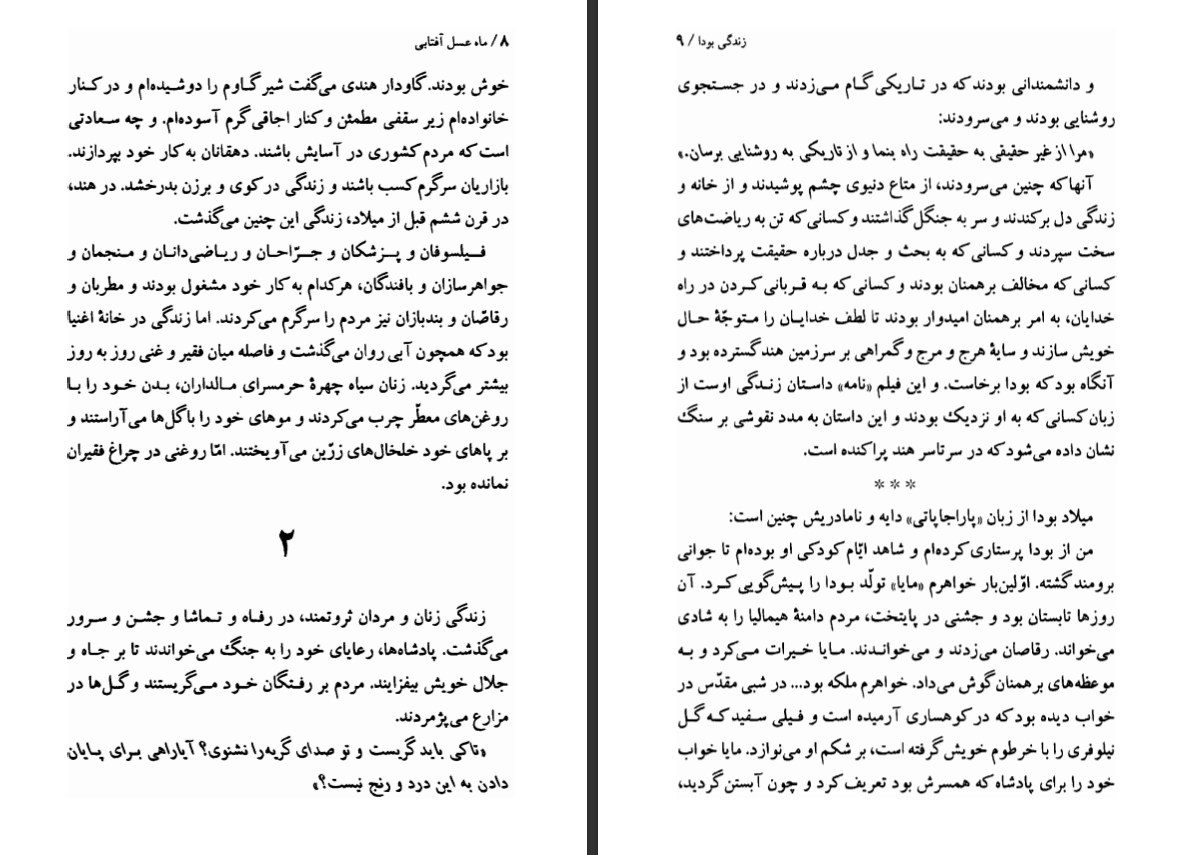 ۸ / ماه عسل آفتابی
خوش بودند. گاودار هندی می‌گفت شیر گاوم را دوشیده‌ام و در کنار
خانواده‌ام زیر سقفی مطمئن و کنار اجاقی گرم آسوده‌ام. و چه سعادتی
است که مردم کشوری در آسایش باشند. دهقانان به کار خود بپردازند.
بازاریان سرگرم کسب باشند و زندگی در کوی و برزن بدرخشد. در هند،
در قرن ششم قبل از میلاد، زندگی این چنین می‌گذشت.
فیلسوفان و پزشکان و جرّاحان و ریاضی‌دانان و منجمان و
جواهرسازان و بافندگان، هرکدام به کار خود مشغول بودند و مطربان و
رقاصّان و بندبازان نیز مردم را سرگرم می‌کردند. اما زندگی در خانهٔ اغنیا
بود که همچون آبی روان می‌گذشت و فاصله میان فقیر و غنی روز به روز
بیشتر می‌گردید. زنان سیاه چهرهٔ حرمسرای مالداران، بدن خود را با
روغن‌های معطّر چرب می‌کردند و موهای خود را با گل‌ها می‌آراستند و
بر پاهای خود خلخال‌های زرّین می‌آویختند. امّا روغنی در چراغ فقیران
نمانده بود.
۲
زندگی زنان و مردان ثروتمند، در رفاه و تماشا و جشن و سرور
می‌گذشت. پادشاه‌ها، رعایای خود را به جنگ می‌خواندند تا بر جاه و
جلال خویش بیفزایند. مردم بر رفتگان خود می‌گریستند و گل‌ها در
مزارع می‌پژمردند.
«تاکی باید گریست و تو صدای گریه را نشنوی؟ آیا راهی برای پایان
دادن به این درد و رنج نیست؟»
زندگی بودا / ۹
و دانشمندانی بودند که در تاریکی گام می‌زدند و در جستجوی
روشنایی بودند و می‌سرودند:
«مرا از غیر حقیقی به حقیقت راه بنما و از تاریکی به روشنایی برسان.»
آنها که چنین می‌سرودند، از متاع دنیوی چشم پوشیدند و از خانه و
زندگی دل برکندند و سر به جنگل گذاشتند و کسانی که تن به ریاضت‌های
سخت سپردند و کسانی که به بحث و جدل درباره حقیقت پرداختند و
کسانی که مخالف برهمنان بودند و کسانی که به قربانی کردن در راه
خدایان، به امر برهمنان امیدوار بودند تا لطف خدایان را متوجّهٔ حال
خویش سازند و سایهٔ هرج و مرج و گمراهی بر سرزمین هند گسترده بود و
آنگاه بود که بودا برخاست. و این فیلم «نامه» داستان زندگی اوست از
زبان کسانی که به او نزدیک بودند و این داستان به مدد نقوشی بر سنگ
نشان داده می‌شود که در سرتاسر هند پراکنده است.
* * *
میلاد بودا از زبان «پاراجاپاتی» دایه و نامادریش چنین است:
من از بودا پرستاری کرده‌ام و شاهد ایّام کودکی او بوده‌ام تا جوانی
برومند گشته. اوّلین‌بار خواهرم «مایا» تولّد بودا را پیش‌گویی کرد. آن
روزها تابستان بود و جشنی در پایتخت، مردم دامنهٔ هیمالیا را به شادی
می‌خواند. رقاصان می‌زدند و می‌خواندند. مایا خیرات می‌کرد و به
موعظه‌های برهمنان گوش می‌داد. خواهرم ملکه بود... در شبی مقدّس در
خواب دیده بود که در کوهساری آرمیده است و فیلی سفید که گل
نیلوفری را با خرطوم خویش گرفته است، بر شکم او می‌نوازد. مایا خواب
خود را برای پادشاه که همسرش بود تعریف کرد و چون آبستن گردید،